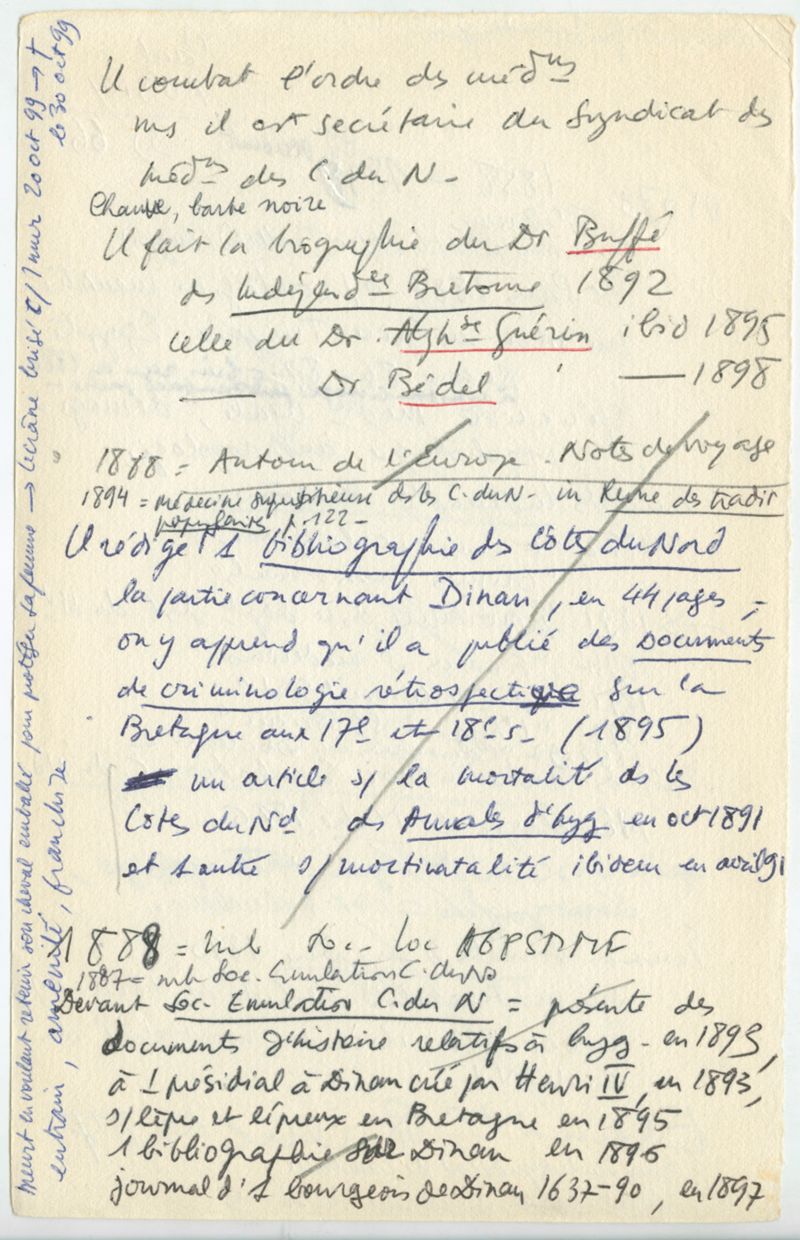 Il combat l'ordre des méd^ns
ms il est secrétaire du Syndicat des
méd^ns des C. du N -
Chauve, barbe noire
Il fait la biographie du Dr Buffé
ds Indépend^ce Bretonne 1892
celle du Dr. Alph^se Guérin ibid 1895
—— Dr Bédel ' —— 1898
1888 = Autour de l'Europe. Notes de voyage
1894 = Médecine superstitieuse ds les C. du N - in Revue des tradit
populaires p. 122 -
Il rédige 1 bibliographie des Côtes du Nord
la partie concernant Dinan, en 44 pages,
on y apprend qu'il a publié des Documents
de criminologie rétrospective sur la
Bretagne aux 17e et 18e s - (1895)
un article s/ la mortalité ds les
Côtes du Nd ds Annales d'hyg en oct 1891
et 1 autre s/ mortinatalité ibidem en avril 91
1888 = mb Soc - loc
1887 = mb Soc. Emulation C. du N
Devant Soc. Emulation C. du N = présente des
documents d'histoire relatifs à hyg - en 1893,
à 1 présidial à Dinan créé par Henri IV, en 1893,
s/ lèpre et lépreux en Bretagne en 1895
1 bibliographie sur Dinan en 1896
journal d'1 bourgeois de Dinan 1637-90, en 1897
meurt en voulant retenir son cheval emballé pour protéger sa femme → le crâne brisé c/ 1 mur 20 oct 99 → †
le 30 oct 99
entrain, aménité, franchise